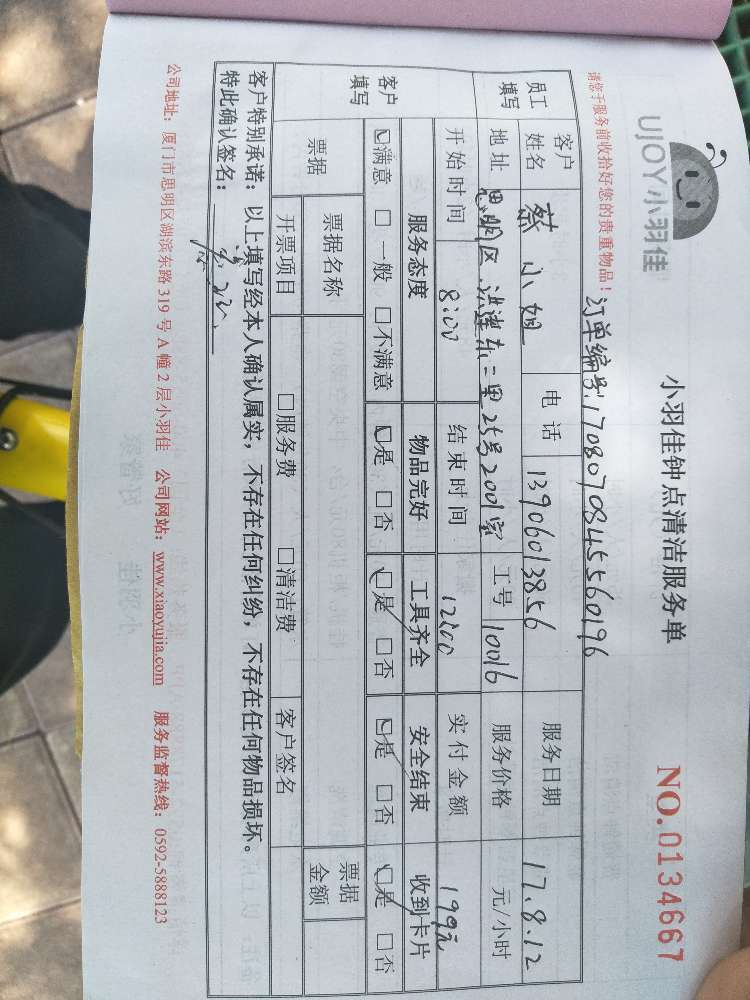 UJOY小羽佳
小羽佳钟点清洁服务单
NO.0134667
请您于服务前收拾好您的贵重物品!
订单编号:17080708455560196
员工填写
客户姓名 蔡小姐 电话 13906013856 服务日期 17.8.12
地址 思明区 洪莲东二里25号2001室 工号 10016 服务价格 元/小时
开始时间 8:00 结束时间 12:00 实付金额 199元
客户填写
服务态度 物品完好 工具齐全 安全结束 收到卡片
☑满意 □一般 □不满意 ☑是 □否 ☑是 □否 ☑是 □否 ☑是 □否
票据 票据名称 票据金额
开票项目 □服务费 □清洁费 客户签名
客户特别承诺:以上填写经本人确认属实,不存在任何纠纷,不存在任何物品损坏。
特此确认签名:
公司地址:厦门市思明区湖滨东路319号A幢2层小羽佳 公司网站:www.xiaoyujia.com 服务监督热线:0592-5888123